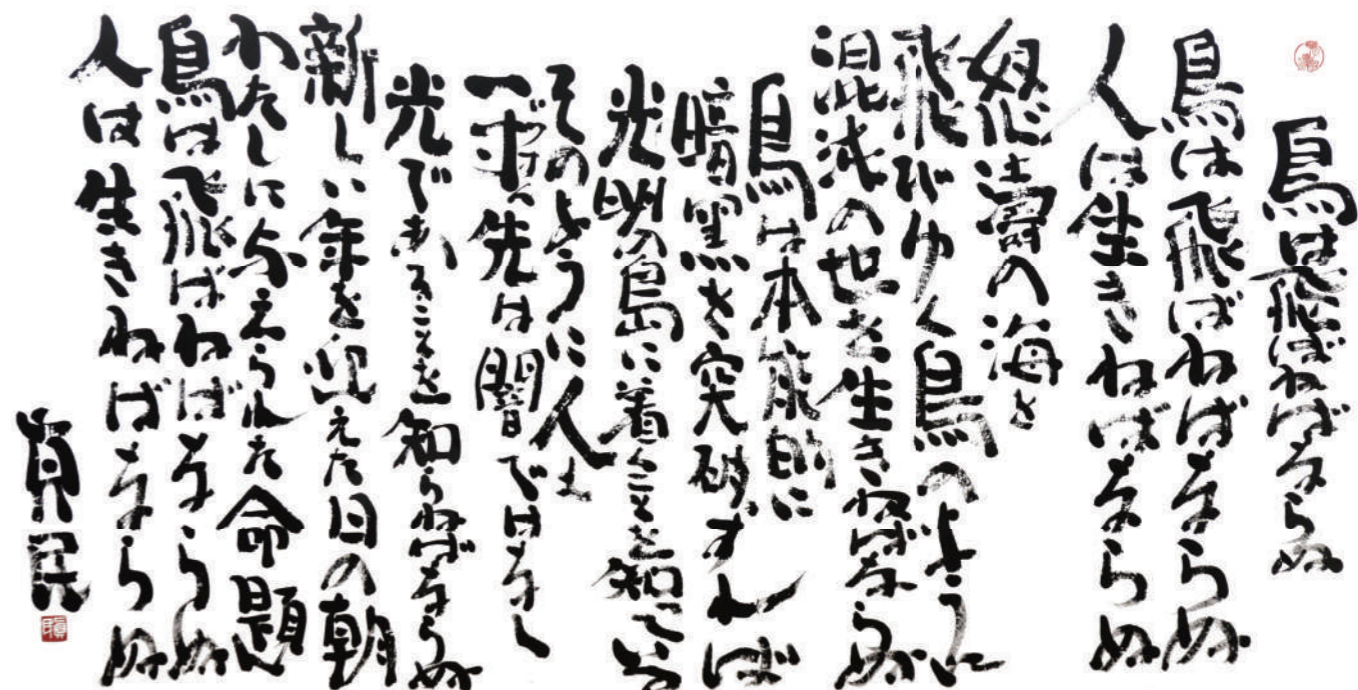 鳥は飛ばねばならぬ
鳥は飛ばねばならぬ
人は生きねばならぬ
怒濤の海を
飛びゆく鳥のように
混沌の世を生きねばならぬ
鳥は本能的に
暗黒を突破すれば
光明の島に着くことを知っている
そのように人も
一寸先は闇ではなく
光であることを知らねばならぬ
新しい年を迎えた日の朝
わたしに与えられた命題
鳥は飛ばねばならぬ
人は生きねばならぬ
真民